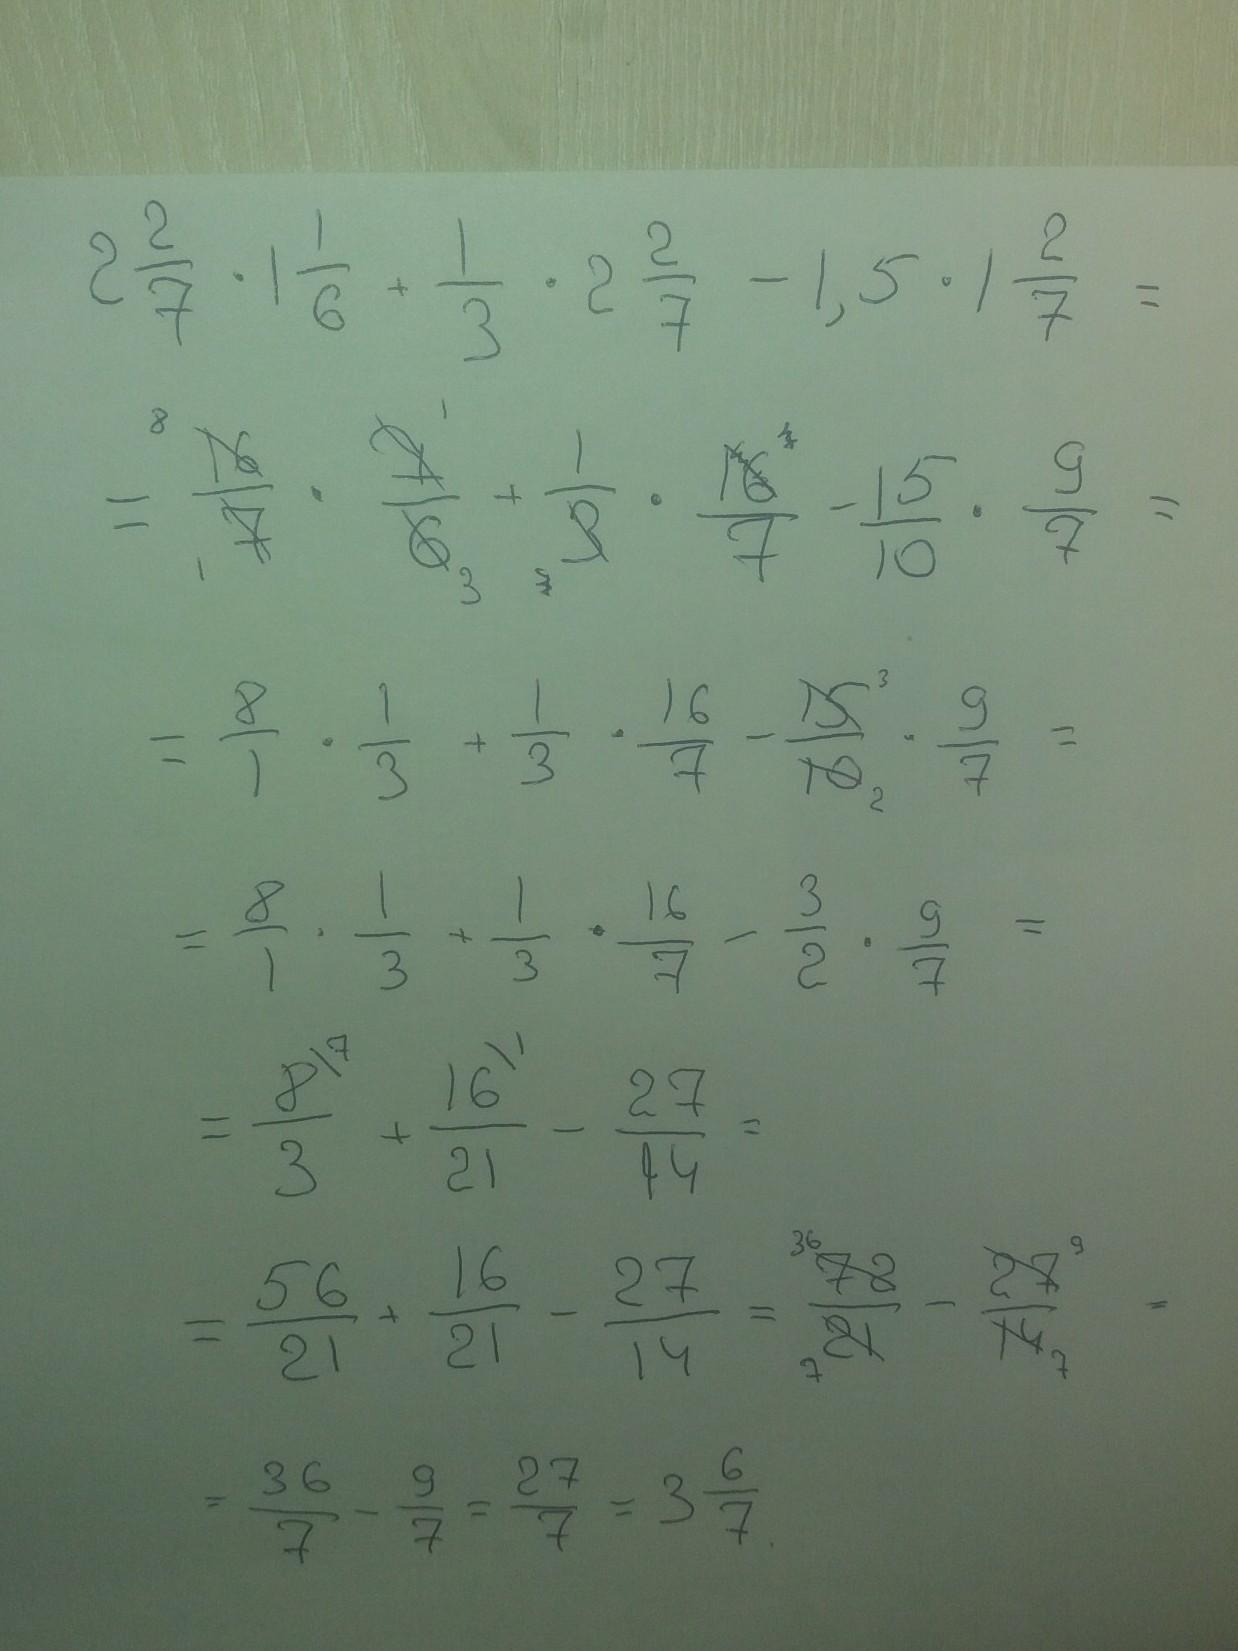 2 2/7 · 1 1/6 + 1/3 · 2 2/7 - 1,5 · 1 2/7 =
= 8 16/7 1 · 7 1/6 3 + 1/3 · 16/7 - 15/10 · 9/7 =
= 8/1 · 1/3 + 1/3 · 16/7 - 15 3/10 2 · 9/7 =
= 8/1 · 1/3 + 1/3 · 16/7 - 3/2 · 9/7 =
= 8\7/3 + 16\1/21 - 27/14 =
= 56/21 + 16/21 - 27/14 = 36 72/21 7 - 27 9/14 7 =
= 36/7 - 9/7 = 27/7 = 3 6/7.